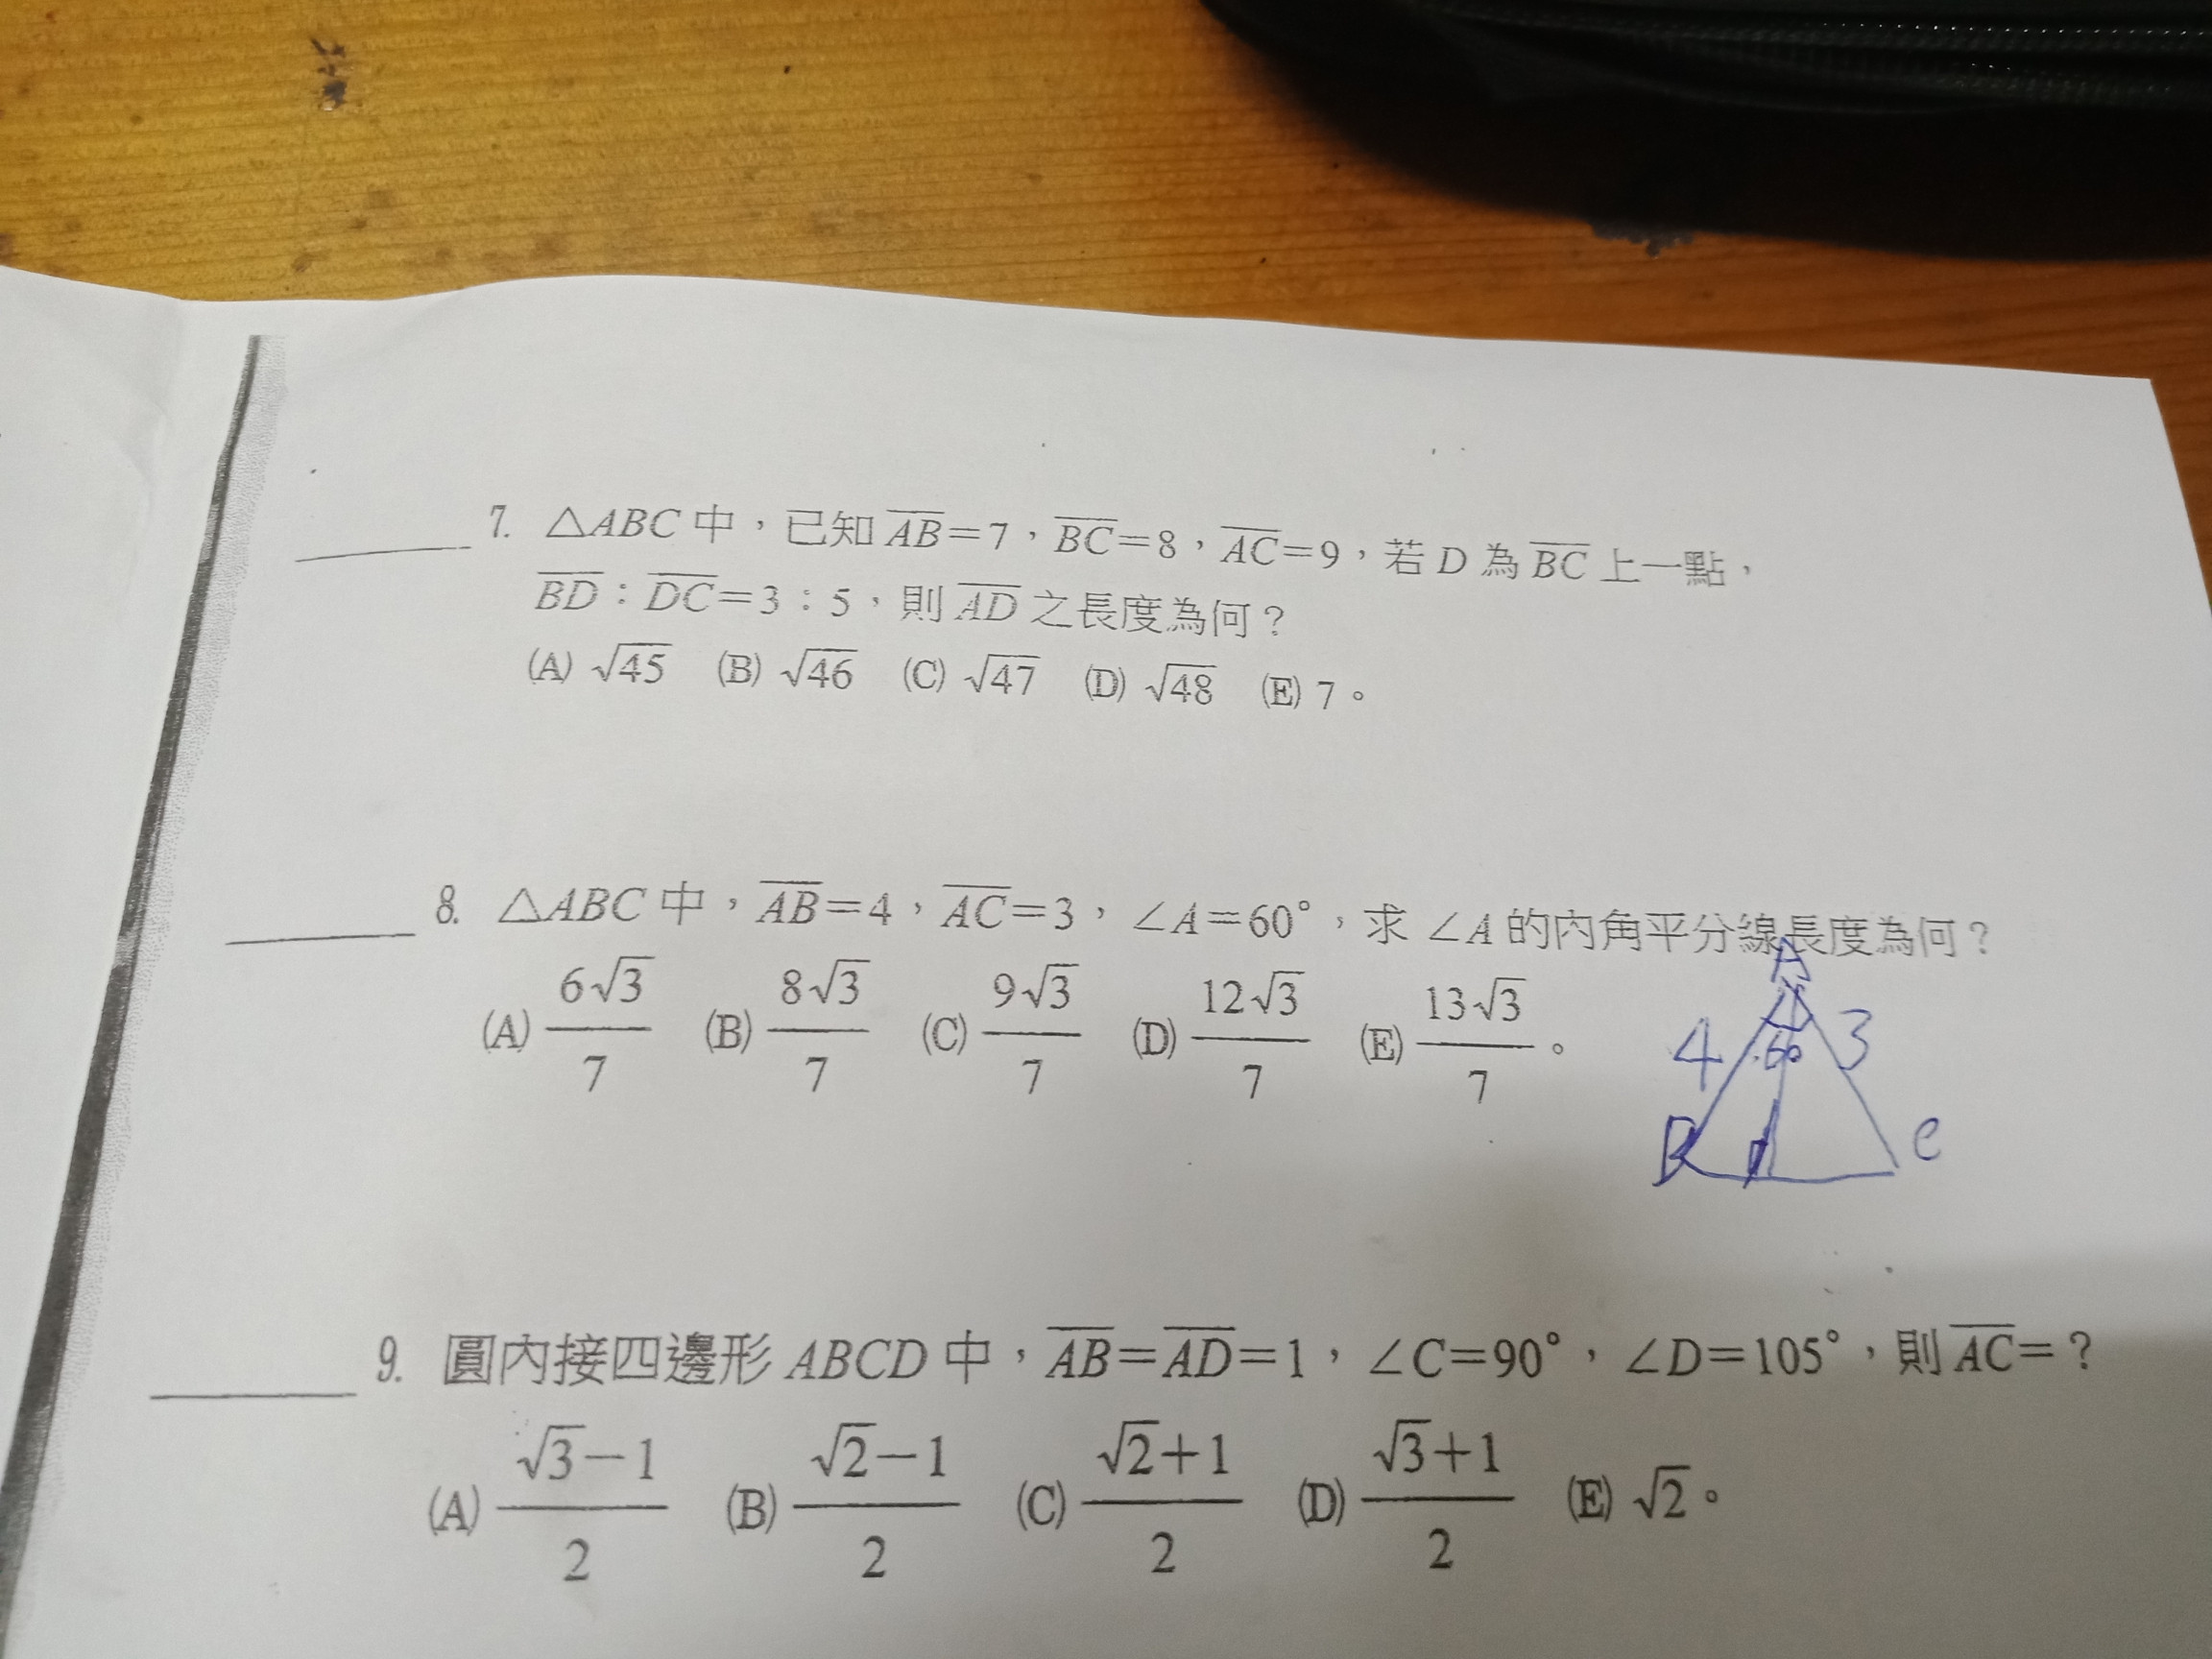 7. △ABC 中，已知 \overline{AB}=7，\overline{BC}=8，\overline{AC}=9，若 D 為 \overline{BC} 上一點，
\overline{BD}：\overline{DC}=3：5，則 \overline{AD} 之長度為何？
(A) √45 (B) √46 (C) √47 (D) √48 (E) 7。
8. △ABC 中，\overline{AB}=4，\overline{AC}=3，∠A=60°，求 ∠A 的內角平分線長度為何？
(A) 6√3/7 (B) 8√3/7 (C) 9√3/7 (D) 12√3/7 (E) 13√3/7。
A
4 60 3
B D C
9. 圓內接四邊形 ABCD 中，\overline{AB}=\overline{AD}=1，∠C=90°，∠D=105°，則 \overline{AC}=？
(A) (√3−1)/2 (B) (√2−1)/2 (C) (√2+1)/2 (D) (√3+1)/2 (E) √2。